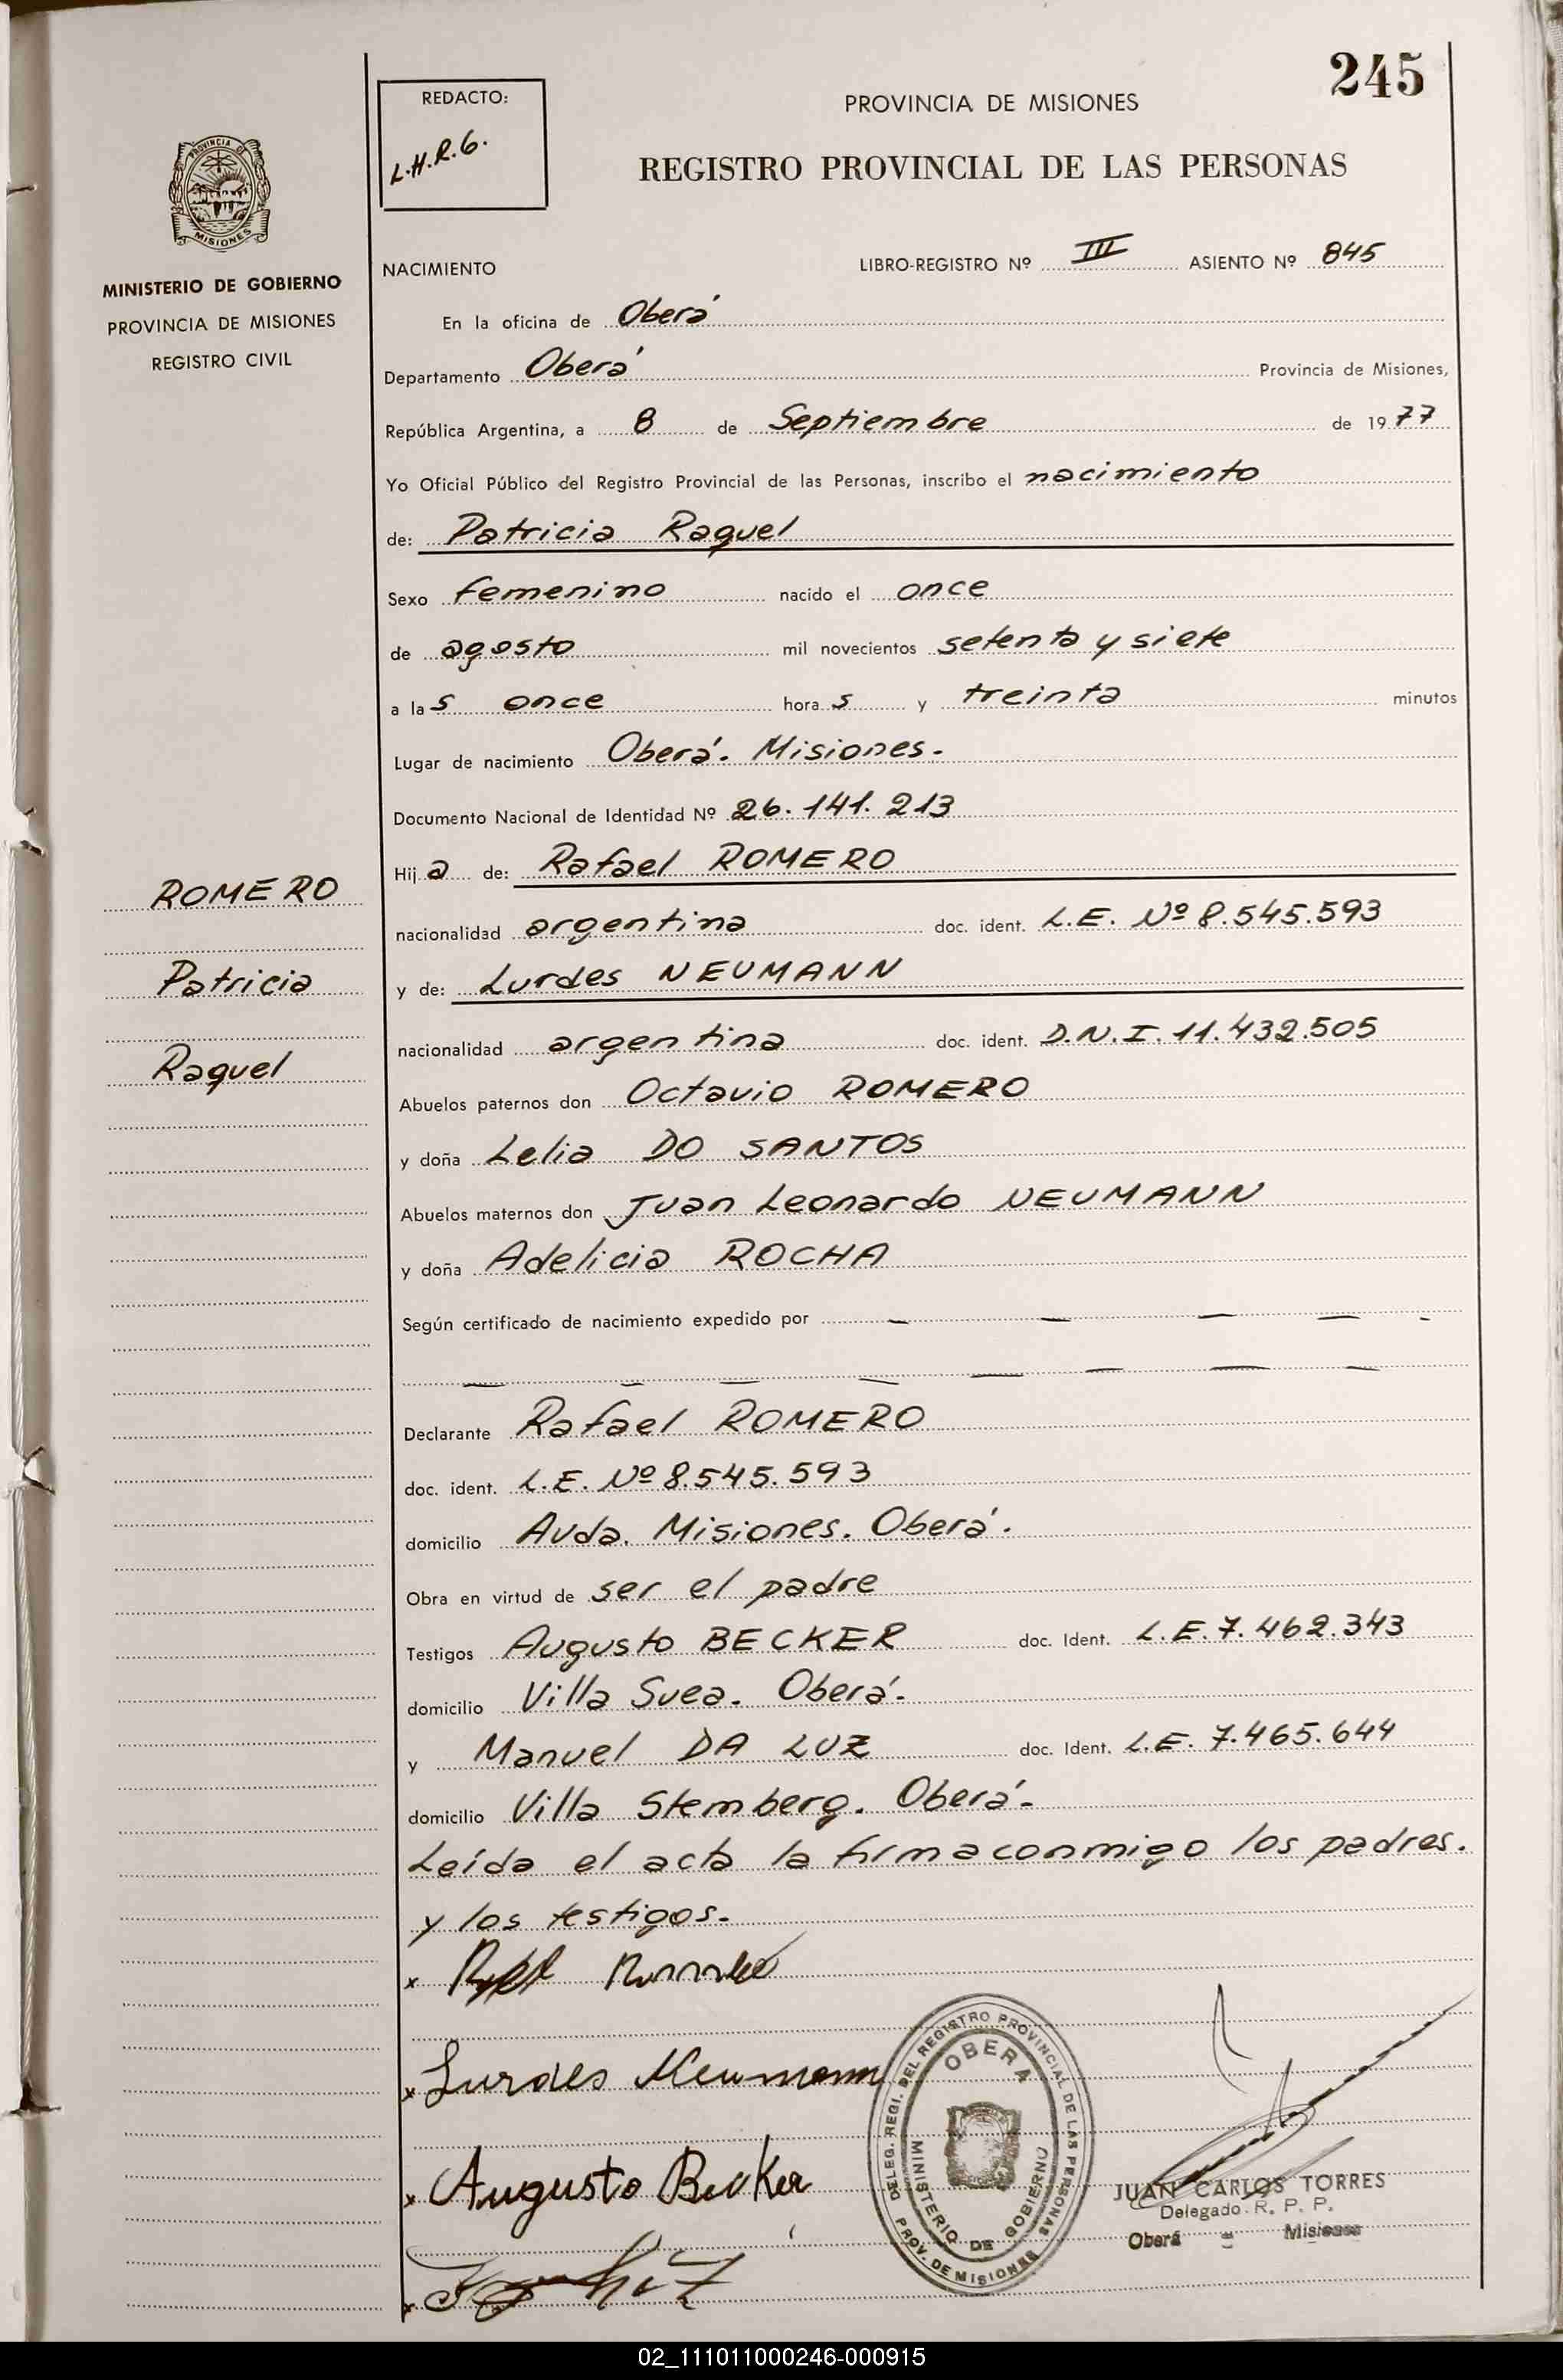 245
REDACTO:
L.H.R.G.
PROVINCIA DE MISIONES
REGISTRO PROVINCIAL DE LAS PERSONAS
PROVINCIA DE
MISIONES
MINISTERIO DE GOBIERNO
PROVINCIA DE MISIONES
REGISTRO CIVIL
NACIMIENTO LIBRO-REGISTRO Nº III ASIENTO Nº 845
En la oficina de Oberá
Departamento Oberá Provincia de Misiones,
República Argentina, a 8 de Septiembre de 1977
Yo Oficial Público del Registro Provincial de las Personas, inscribo el nacimiento
de: Patricia Raquel
Sexo femenino nacido el once
de agosto mil novecientos setenta y siete
a las once horas y treinta minutos
Lugar de nacimiento Oberá. Misiones.
Documento Nacional de Identidad Nº 26.141.213
Hija de: Rafael ROMERO
nacionalidad argentina doc. ident. L.E. Nº 8.545.593
y de: Lurdes NEUMANN
nacionalidad argentina doc. ident. D.N.I. 11.432.505
Abuelos paternos don Octavio ROMERO
y doña Lelia DO SANTOS
Abuelos maternos don Juan Leonardo NEUMANN
y doña Adelicia ROCHA
Según certificado de nacimiento expedido por — — — — -
— — — — — — —
Declarante Rafael ROMERO
doc. ident. L.E. Nº 8.545.593
domicilio Avda. Misiones. Oberá.
Obra en virtud de ser el padre
Testigos Augusto BECKER doc. Ident. L.E. 7.462.343
domicilio Villa Svea. Oberá.
y Manuel DA LUZ doc. Ident. L.E. 7.465.644
domicilio Villa Stemberg. Oberá.
Leída el acta la firma conmigo los padres.
y los testigos.
ROMERO
Patricia
Raquel
x
x Lurdes Neumann
x Augusto Becker
x
DELEG. REGI. DEL REGISTRO PROVINCIAL DE LAS PERSONAS
PROV. DE MISIONES
OBERA
MINISTERIO DE GOBIERNO
JUAN CARLOS TORRES
Delegado R. P. P.
Oberá - Misiones
02_111011000246-000915